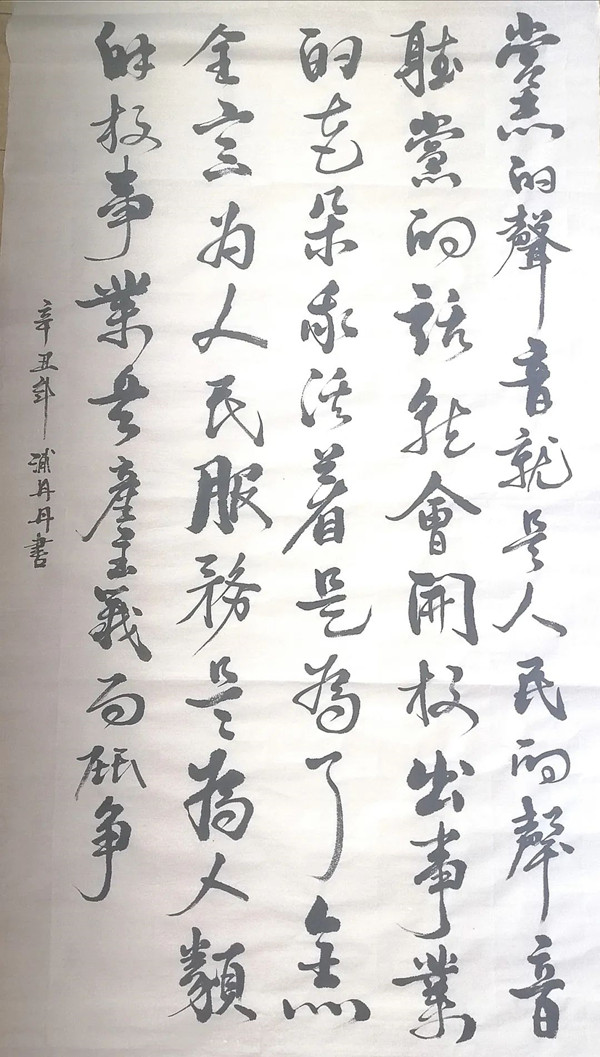 黨的聲音就是人民的聲音
聽黨的話就會開放出事業
的花朵我活着是為了全心
全意為人民服務是為人類
解放事業共產主義而鬥爭
辛丑年 浦丹丹書